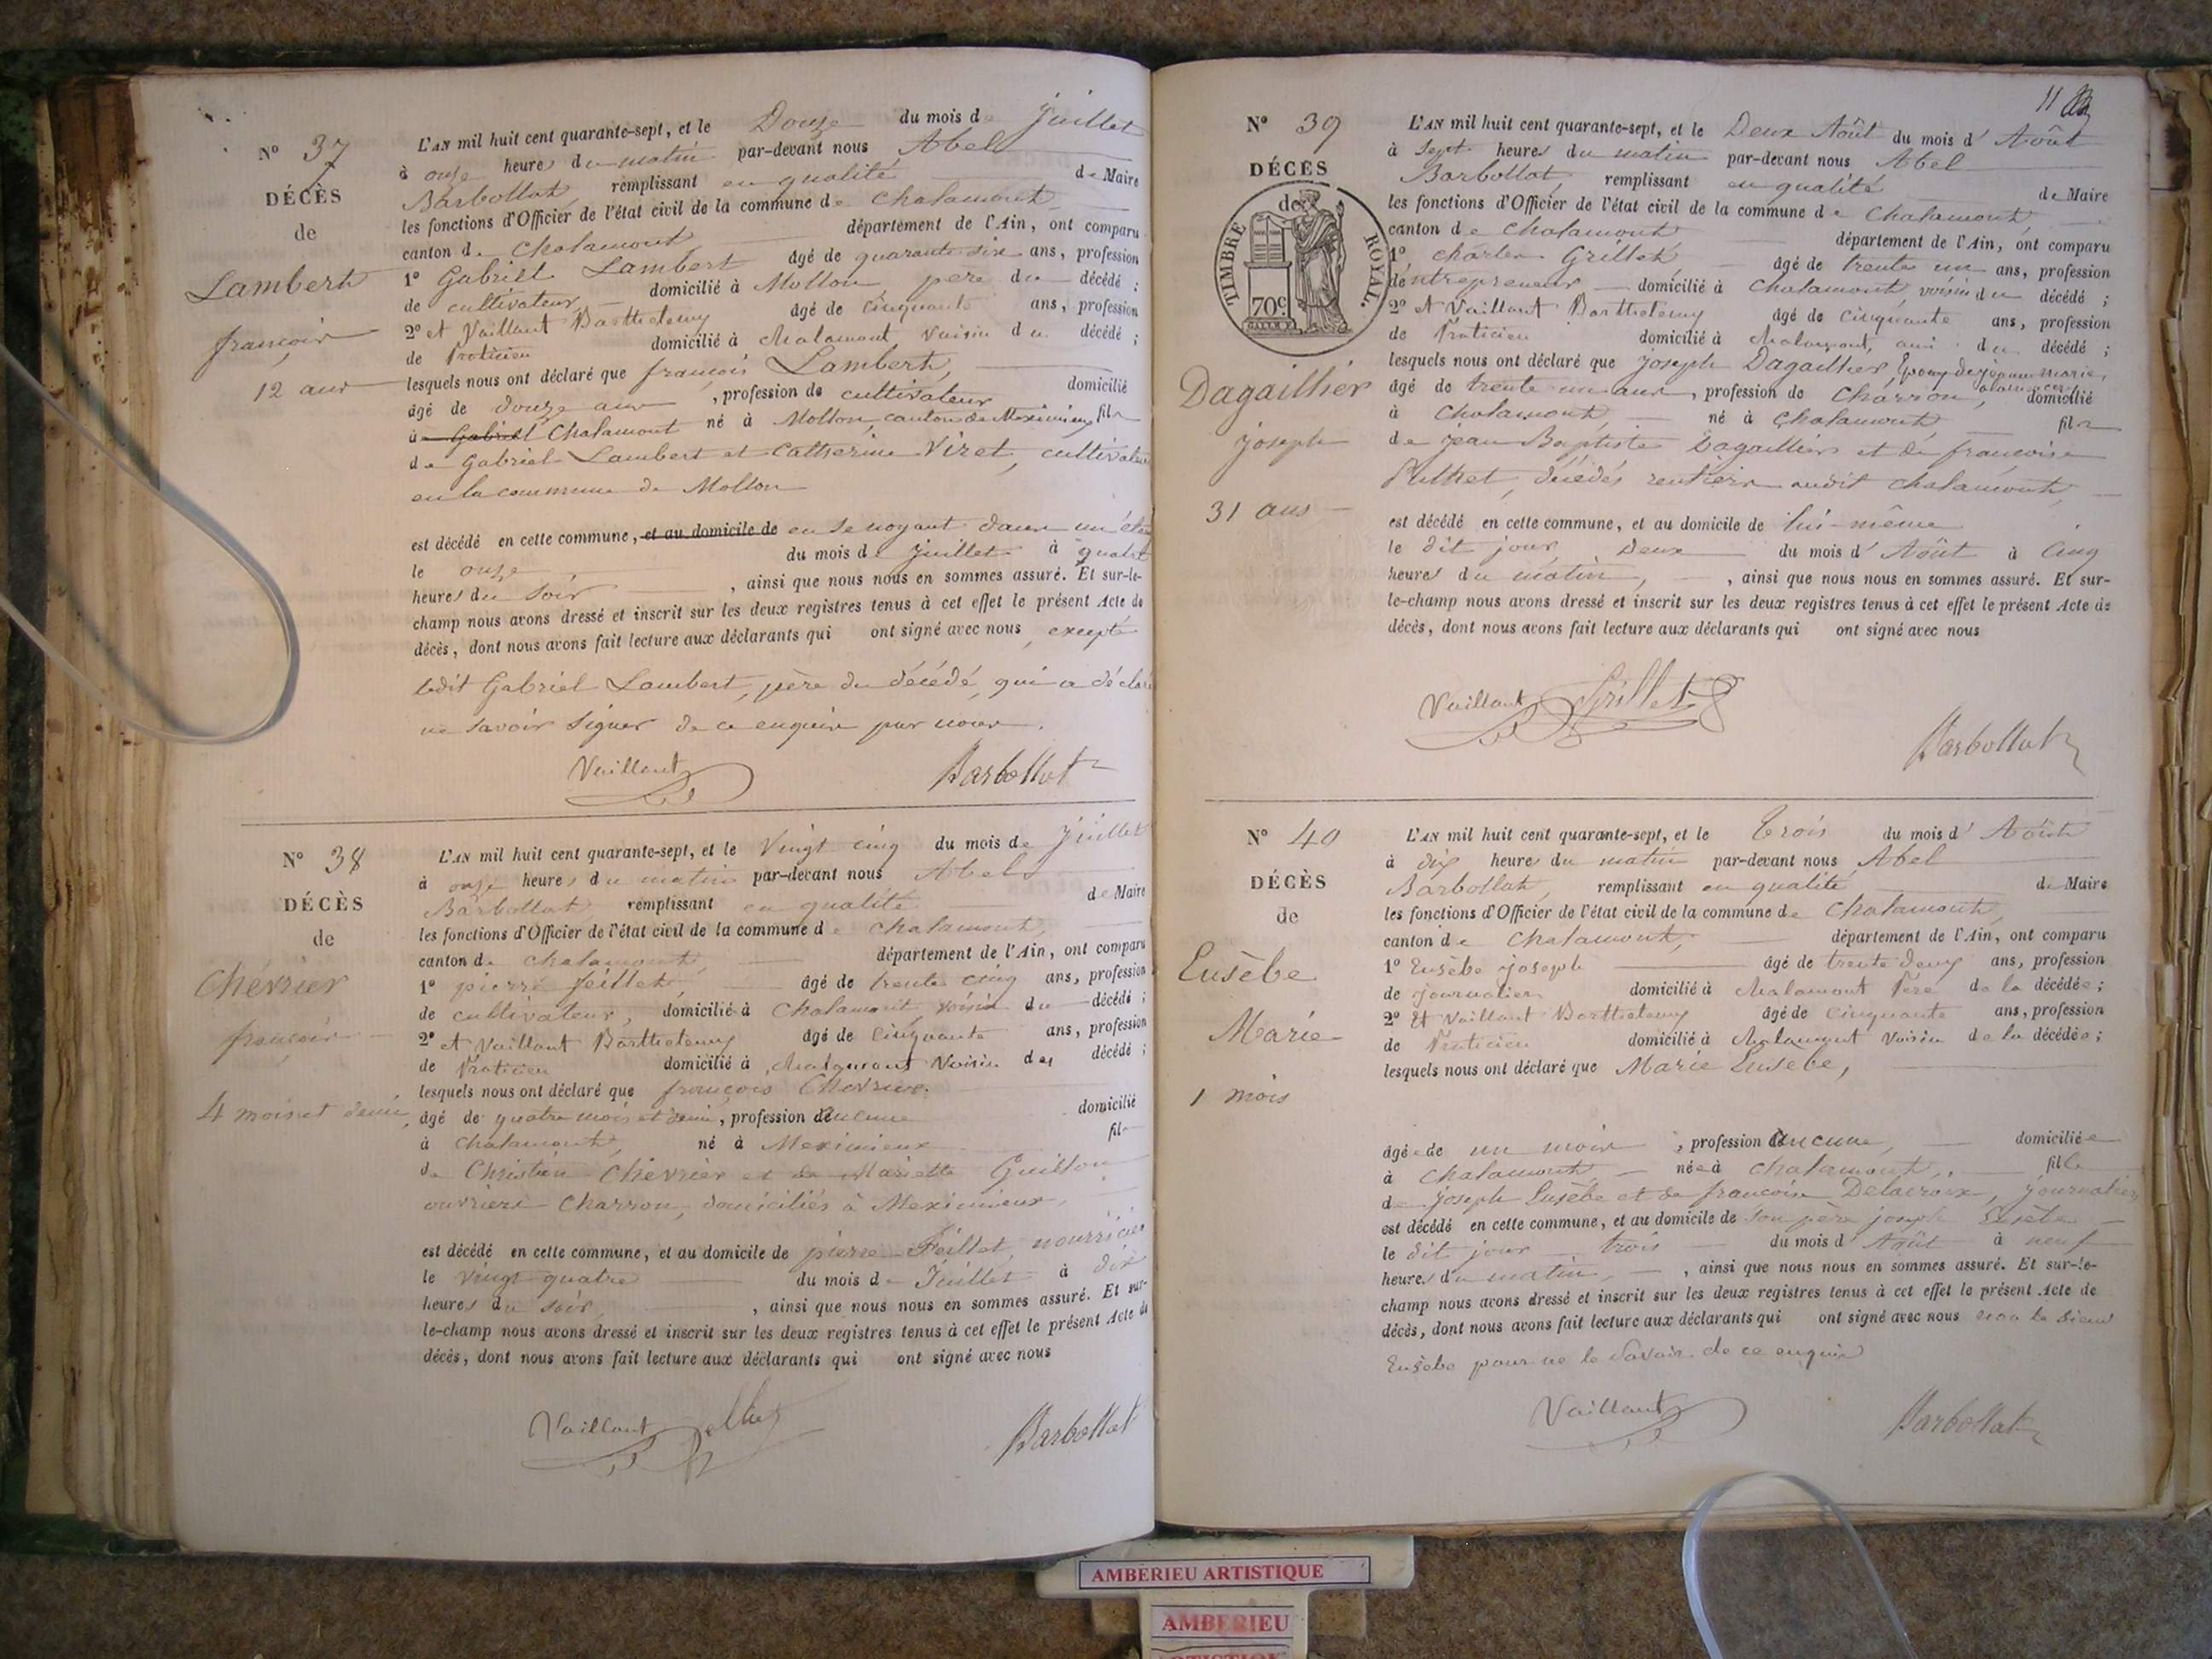 N° 37
DÉCÈS
de
Lambert
françois
12 ans
L'AN mil huit cent quarante-sept, et le Douze du mois de Juillet
à onze heures du matin par-devant nous Abel
Barbollat, remplissant en qualité de Maire
les fonctions d'Officier de l'état civil de la commune de Chalamont
canton de Chalamont département de l'Ain, ont comparu
1° Gabriel Lambert âgé de quarante six ans, profession
de cultivateur domicilié à Mollon, père du décédé ;
2° et Vaillant Barthelemy âgé de cinquante ans, profession
de Praticien domicilié à Chalamont voisin du décédé ;
lesquels nous ont déclaré que françois Lambert,
âgé de douze ans, profession de cultivateur domicilié
à Gabriel Chalamont né à Mollon, canton de Meximieux fils
de Gabriel Lambert et Catherine Viret, cultivateurs
en la commune de Mollon
est décédé en cette commune, et au domicile de en se noyant dans un étang
le onze du mois de Juillet à quatre
heures du soir, ainsi que nous nous en sommes assuré. Et sur-le-
champ nous avons dressé et inscrit sur les deux registres tenus à cet effet le présent Acte de
décès, dont nous avons fait lecture aux déclarants qui ont signé avec nous, excepté
ledit Gabriel Lambert, père du décédé, qui a déclaré
ne savoir signer de ce enquis par nous.
Vaillant Barbollat
N° 38
DÉCÈS
de
Chevrier
françois
4 mois et demi
L'AN mil huit cent quarante-sept, et le Vingt cinq du mois de Juillet
à onze heures du matin par-devant nous Abel
Barbollat, remplissant en qualité de Maire
les fonctions d'Officier de l'état civil de la commune de Chalamont,
canton de Chalamont, département de l'Ain, ont comparu
1° pierre feillet, âgé de trente cinq ans, profession
de cultivateur, domicilié à Chalamont, voisin du décédé ;
2° et Vaillant Barthelemy âgé de cinquante ans, profession
de Praticien domicilié à Chalamont Voisin du décédé ;
lesquels nous ont déclaré que françois Chevrier
âgé de quatre mois et demi, profession d'aucune domicilié
à Chalamont, né à Meximieux fils
de Christin Chevrier et de Mariette Guillon
ouvriers Charron, domiciliés à Meximieux,
est décédé en cette commune, et au domicile de pierre Feillet, nourricier
le vingt quatre du mois de Juillet à dix
heures du soir, ainsi que nous nous en sommes assuré. Et sur-
le-champ nous avons dressé et inscrit sur les deux registres tenus à cet effet le présent Acte de
décès, dont nous avons fait lecture aux déclarants qui ont signé avec nous
Vaillant Barbollat
11
N° 39
DÉCÈS
de
TIMBRE ROYAL.
70c.
Dagaillier
joseph
31 ans
L'AN mil huit cent quarante-sept, et le Deux Août du mois d'Août
à sept heures du matin par-devant nous Abel
Barbollat, remplissant en qualité de Maire
les fonctions d'Officier de l'état civil de la commune de Chalamont
canton de Chalamont département de l'Ain, ont comparu
1° charles Grillet âgé de trente un ans, profession
d'entrepreneur domicilié à Chalamont, voisin du décédé ;
2° et Vaillant Barthelemy âgé de cinquante ans, profession
de Praticien domicilié à Chalamont, ami du décédé ;
lesquels nous ont déclaré que joseph Dagaillier, Epoux de jeanne marie
âgé de trente un ans, profession de Charron, domicilié
à Chalamont, né à Chalamont, fils
de jean Baptiste Dagaillier et de francoise
Puthet, décédés rentiers audit Chalamont,
est décédé en cette commune, et au domicile de lui-même
le dit jour Deux du mois d'Août à Cinq
heures du matin, ainsi que nous nous en sommes assuré. Et sur-
le-champ nous avons dressé et inscrit sur les deux registres tenus à cet effet le présent Acte de
décès, dont nous avons fait lecture aux déclarants qui ont signé avec nous
Vaillant Grillet
Barbollat
N° 40
DÉCÈS
de
Eusèbe
Marie
1 mois
L'AN mil huit cent quarante-sept, et le Trois du mois d'Août
à dix heures du matin par-devant nous Abel
Barbollat, remplissant en qualité de Maire
les fonctions d'Officier de l'état civil de la commune de Chalamont,
canton de Chalamont, département de l'Ain, ont comparu
1° Eusèbe joseph âgé de trente deux ans, profession
de journalier domicilié à Chalamont Père de la décédée ;
2° Et Vaillant Barthelemy âgé de cinquante ans, profession
de Praticien domicilié à Chalamont voisin de la décédée ;
lesquels nous ont déclaré que Marie Eusèbe,
âgée de un mois, profession d'aucune, domiciliée
à Chalamont, née à Chalamont, fille
de joseph Eusèbe et de francoise Delacroix, journaliers
est décédé en cette commune, et au domicile de son père joseph Eusèbe
le dit jour trois du mois d'Août à neuf
heures du matin, ainsi que nous nous en sommes assuré. Et sur-le-
champ nous avons dressé et inscrit sur les deux registres tenus à cet effet le présent Acte de
décès, dont nous avons fait lecture aux déclarants qui ont signé avec nous non le sieur
Eusèbe pour ne le savoir de ce enquis
Vaillant Barbollat
AMBERIEU ARTISTIQUE
AMBERIEU
ARTISTIQUE